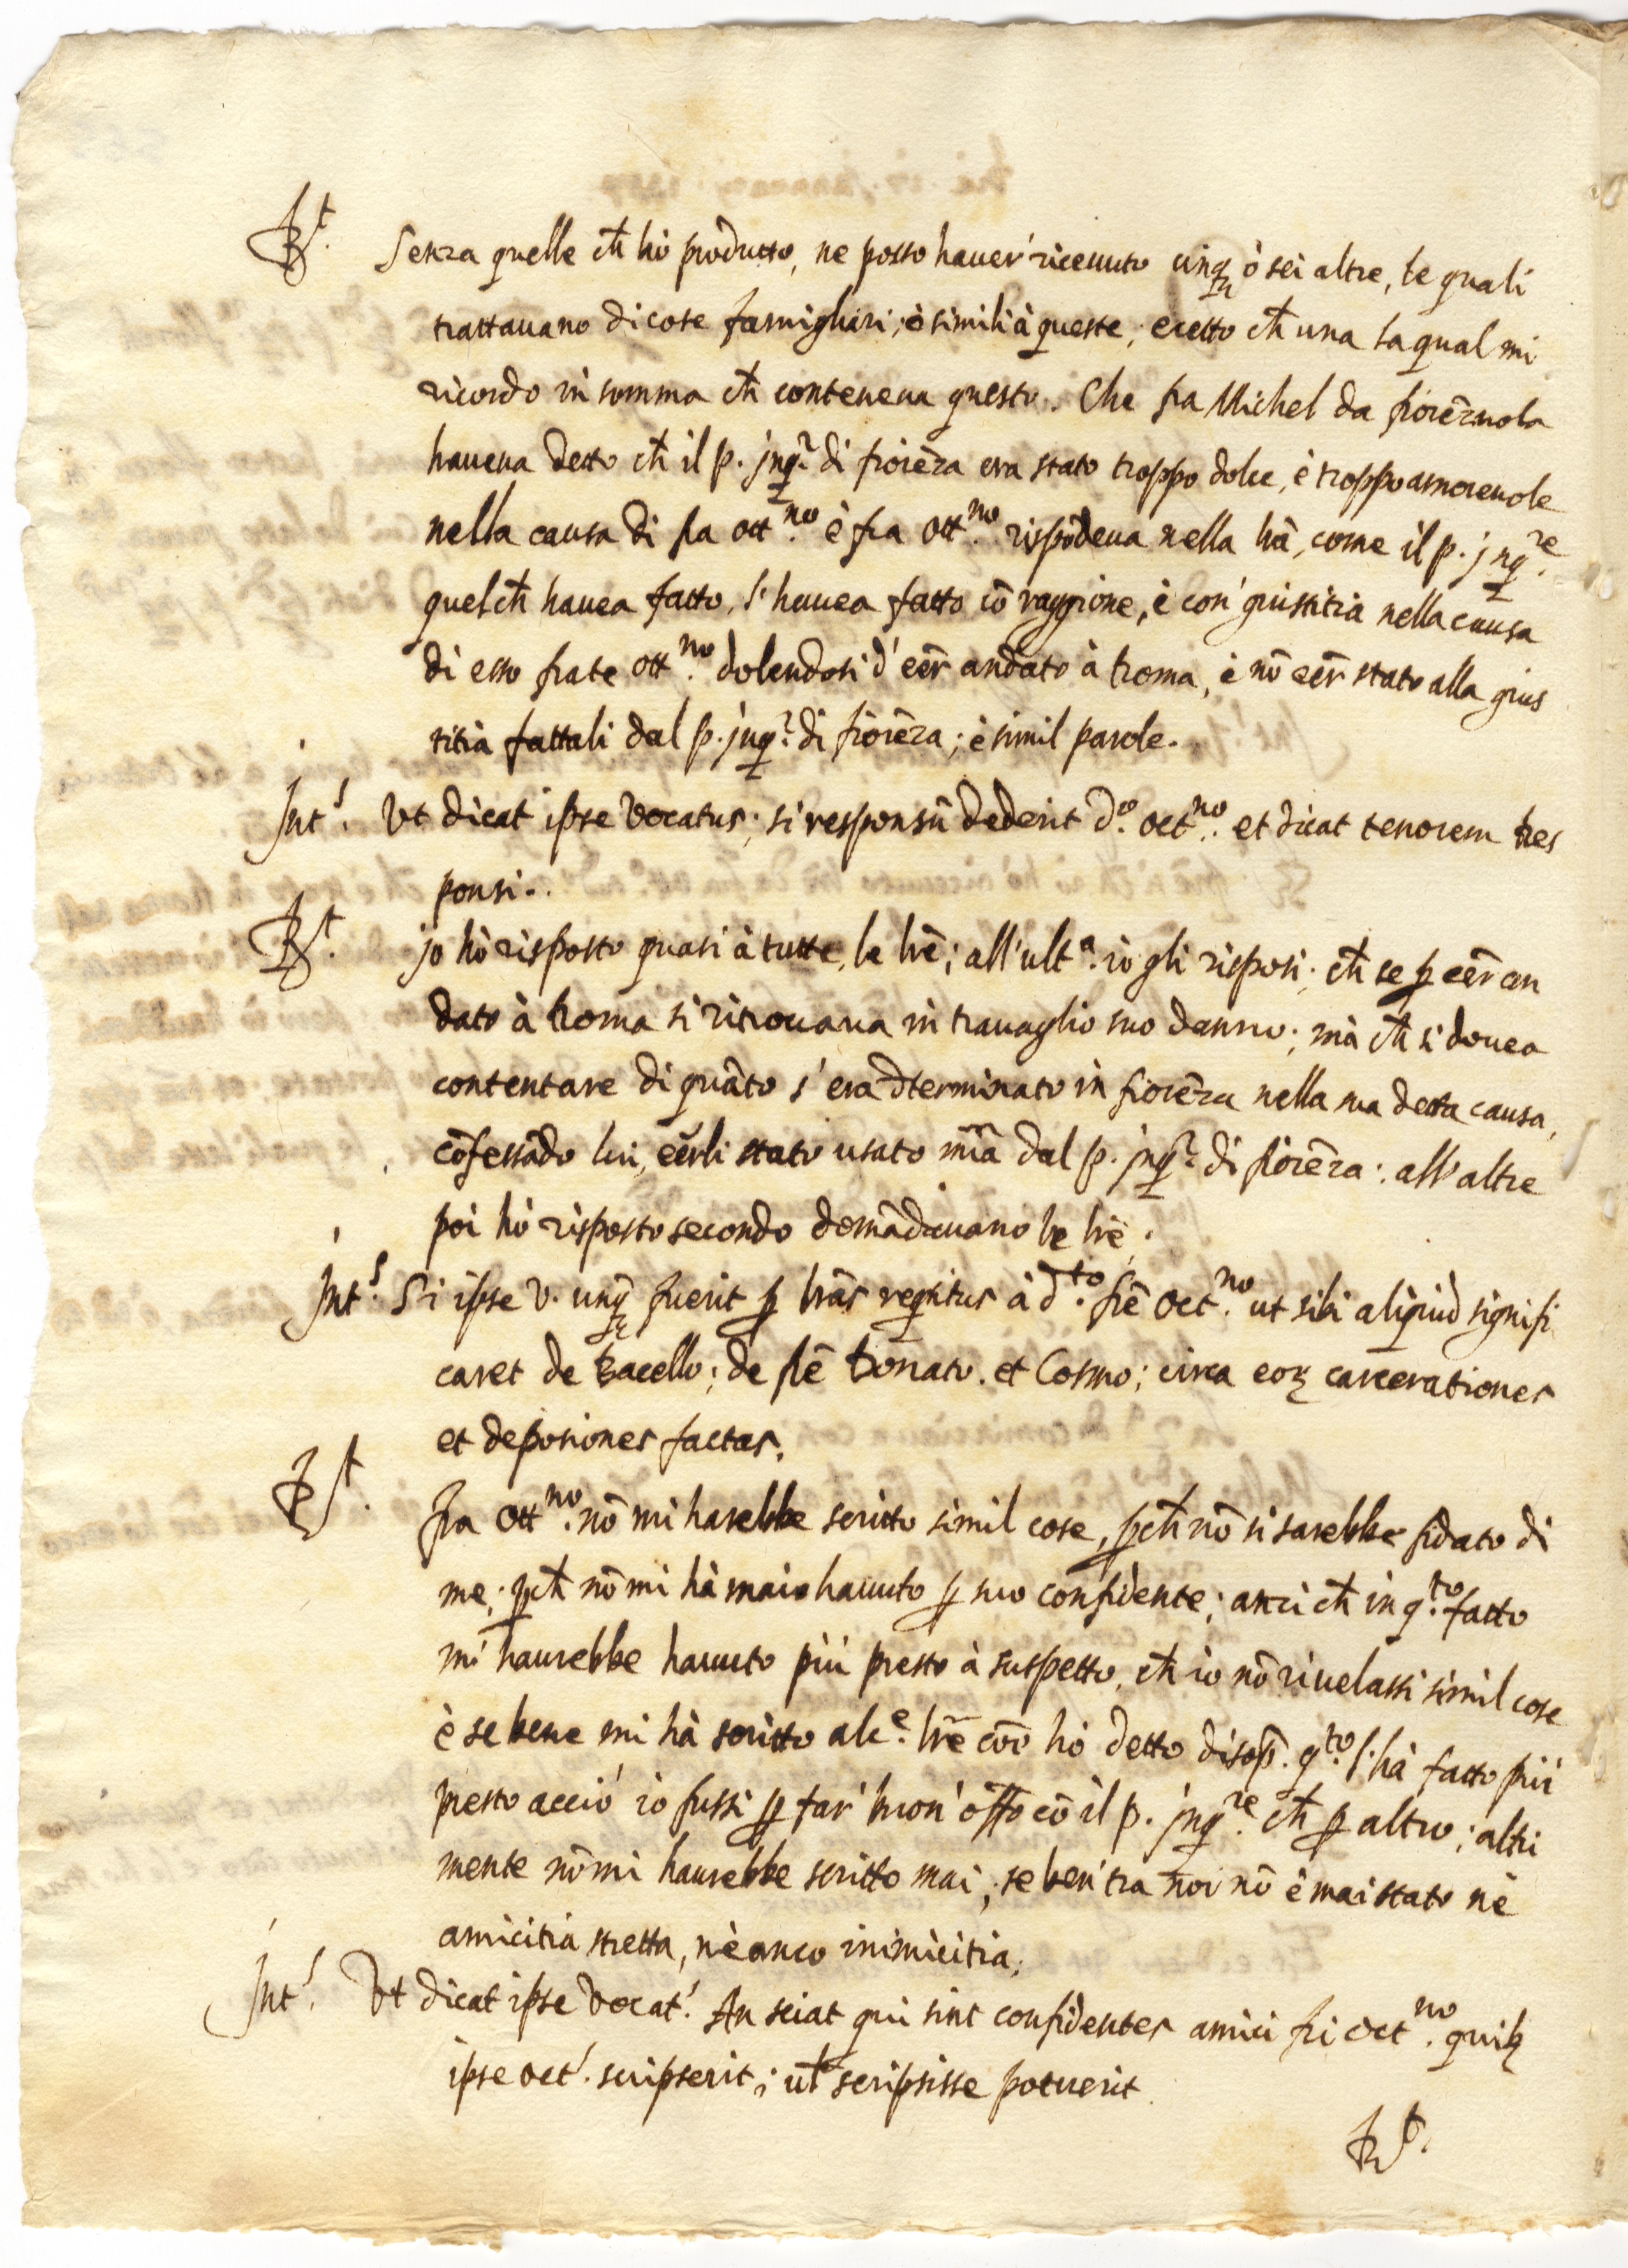 Rt. Senza quelle ch̄ hò prodūtto, ne posso hauer' riceuuto cinqꝫ ò sei altre, le quali
trattauano di cose famigliari; è simili à queste; ecetto ch̄ una la qual mi
ricordo in somma ch̄ conteneua questo. Che fra Michel da fiorēzuola
haueua detto ch̄ il p. jnq.r di fiorēza era stato troppo dolce, è troppo amoreuole
nella causa di fra ott.no è fra ott.no rispōdeua nella lrā, come il p. jnq.re
quel ch̄ hauea fatto, l'hauea fatto cō raggione, è con' giustitia nella causa
di esso frate ott.no dolendosi d' eēr andato à Roma, è nō eēr stato alla gius
titia fattali dal p. jnq.r di fiorēza; è simil parole.
Int.s Vt dicat ipse Vocatus; si responsū dederit d.o oct.no et dicat tenorem Res
ponsi.
Rt. jo hò risposto quasi à tutte le lrē; all' ult.a io gli risposi; ch̄ se ꝑ eēr an
dato à Roma si ritrouaua in trauaglio suo danno; mà ch̄ si douea
contentare di quāto s' era dterminato in fiorēza nella sua detta causa,
cōfessādo lui, eērli stato usato mīa dal p. jnq.r di fiorēza: all' altre
poi hò risposto secondo domādauano le lrē.
Int.s Si ipse V. unqꝫ fuerit ꝑ lrās reqsitus à d.to frē Oct.no ut sibi aliquid signifi
caret de Bacello; de frē Donato. et Cosmo; circa eoꝝ carcerationes
et deposiones factas.
Rt. fra Ott.no nō mi harebbe scritto simil cose, ꝑch̄ nō si sarebbe fidato di
me; ꝑch̄ nō mi hà mai hauuto ꝑ suo confidente; anzi ch̄ in q.to fatto
mi haurebbe hauuto più presto à suspetto, ch̄ io nō riuelassi simil cose
è se bene mi hà scritto alc.e lrē coō hò detto disop̄. q.to l'hà fatto più
presto acciò io fussi ꝑ far' buon' offo cō il p. jnq.re ch̄ ꝑ altro; altri
mente nō mi haurebbe scritto mai; se ben' tra noi nō è mai stato nè
amicitia stretta, nè anco inimicitia.
Int.s Vt dicat ipse Vocat.s An sciat qui sint confidentes amici fri Oct.no quibꝫ
ipse oct.s scripserit; ul̄ scripsisse potuerit.
Rt.